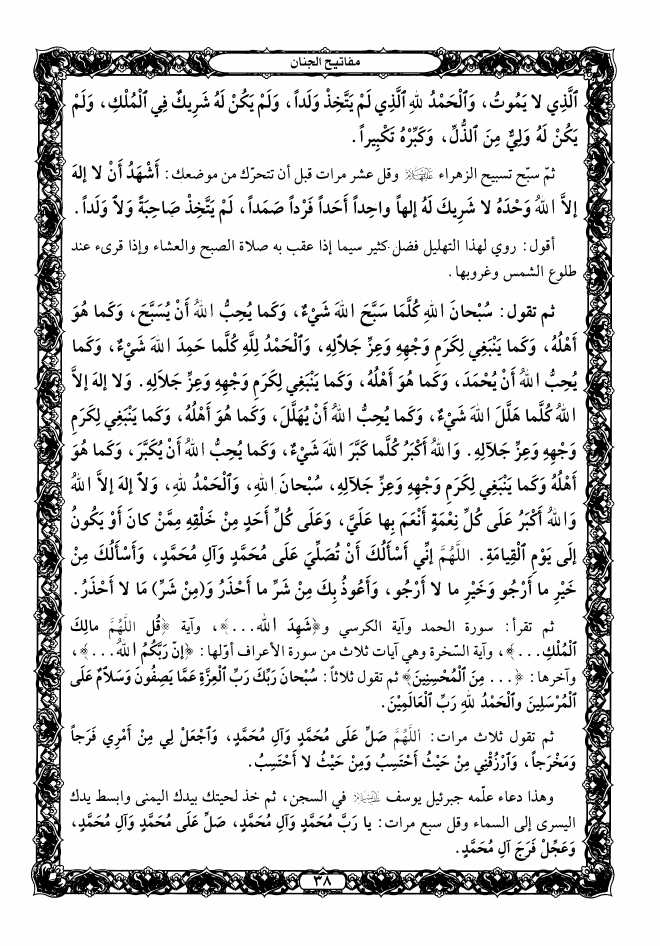 مفاتيح الجنان
ٱلَّذِي لا يَمُوتُ، وَٱلْحَمْدُ للهِ ٱلَّذِي لَمْ يَتَّخِذْ وَلَداً، وَلَمْ يَكُنْ لَهُ شَرِيكٌ فِي ٱلْمُلْكِ، وَلَمْ
يَكُنْ لَهُ وَلِيٌّ مِنَ ٱلذُّلِّ، وَكَبِّرْهُ تَكْبِيراً.
ثمّ سبّح تسبيح الزهراء عليها السلام وقل عشر مرات قبل أن تتحرّك من موضعك: أَشْهَدُ أَنْ لا إلهَ
إلاَّ اللهُ وَحْدَهُ لا شَرِيكَ لَهُ إلهاً واحِداً أَحَداً فَرْداً صَمَداً، لَمْ يَتَّخِذْ صَاحِبَةً وَلاَ وَلَداً.
أقول: روي لهذا التهليل فضل كثير سيما إذا عقب به صلاة الصبح والعشاء وإذا قرىء عند
طلوع الشمس وغروبها.
ثم تقول: سُبْحانَ اللهِ كُلَّمَا سَبَّحَ اللهَ شَيْءٌ، وَكَما يُحِبُّ اللهُ أَنْ يُسَبَّحَ، وَكَما هُوَ
أَهْلُهُ، وَكَما يَنْبَغِي لِكَرَمِ وَجْهِهِ وَعِزِّ جَلاَلِهِ، وَالْحَمْدُ لِلَّهِ كُلَّما حَمِدَ اللهَ شَيْءٌ، وَكَما
يُحِبُّ اللهُ أَنْ يُحْمَدَ، وَكَما هُوَ أَهْلُهُ، وَكَما يَنْبَغِي لِكَرَمِ وَجْهِهِ وَعِزِّ جَلاَلِهِ. وَلا إلهَ إلاَّ
اللهُ كُلَّما هَلَّلَ اللهَ شَيْءٌ، وَكَما يُحِبُّ اللهُ أَنْ يُهَلَّلَ، وَكَما هُوَ أَهْلُهُ، وَكَما يَنْبَغِي لِكَرَمِ
وَجْهِهِ وَعِزِّ جَلاَلِهِ. وَاللهُ أَكْبَرُ كُلَّما كَبَّرَ اللهَ شَيْءٌ، وَكَما يُحِبُّ اللهُ أَنْ يُكَبَّرَ، وَكَما هُوَ
أَهْلُهُ وَكَما يَنْبَغِي لِكَرَمِ وَجْهِهِ وَعِزِّ جَلاَلِهِ، سُبْحانَ اللهِ، وَٱلْحَمْدُ للهِ، وَلاَ إلهَ إلاَّ اللهُ
وَاللهُ أَكْبَرُ عَلَى كُلِّ نِعْمَةٍ أَنْعَمَ بِها عَلَيَّ، وَعَلَى كُلِّ أَحَدٍ مِنْ خَلْقِهِ مِمَّنْ كانَ أَوْ يَكُونُ
إلَى يَوْمِ ٱلْقِيامَةِ. اللَّهُمَّ إنِّي أَسْأَلُكَ أَنْ تُصَلِّيَ عَلَى مُحَمَّدٍ وَآلِ مُحَمَّدٍ، وَأَسْأَلُكَ مِنْ
خَيْرِ ما أَرْجُو وَخَيْرِ ما لا أَرْجُو، وَأَعُوذُ بِكَ مِنْ شَرِّ ما أَحْذَرُ وَ(مِنْ شَرِّ) مَا لا أَحْذَرُ.
ثم تقرأ: سورة الحمد وآية الكرسي و﴿شَهِدَ الله...﴾، وآية ﴿قُل اللَّهُمَّ مالِكَ
ٱلْمُلْكِ...﴾، وآية السّخرة وهي آيات ثلاث من سورة الأعراف أوّلها: ﴿إنّ رَبَّكُمُ اللهُ...﴾،
وآخرها: ﴿... مِنَ ٱلْمُحْسِنِينَ﴾ ثم تقول ثلاثاً: سُبْحَانَ رَبِّكَ رَبِّ ٱلْعِزَّةِ عَمَّا يَصِفُونَ وَسَلاَمٌ عَلَى
ٱلْمُرْسَلِينَ وٱلْحَمْدُ للهِ رَبِّ ٱلْعَالَمِيْنَ.
ثم تقول ثلاث مرات: اللَّهُمَّ صَلِّ عَلَى مُحَمَّدٍ وَآلِ مُحَمَّدٍ، وَٱجْعَلْ لِي مِنْ أَمْرِي فَرَجاً
وَمَخْرَجاً، وَٱرْزُقْنِي مِنْ حَيْثُ أَحْتَسِبُ وَمِنْ حَيْثُ لا أَحْتَسِبُ.
وهذا دعاء علّمه جبرئيل يوسف عليه السلام في السجن، ثم خذ لحيتك بيدك اليمنى وابسط يدك
اليسرى إلى السماء وقل سبع مرات: يا رَبَّ مُحَمَّدٍ وَآلِ مُحَمَّدٍ، صَلِّ عَلَى مُحَمَّدٍ وَآلِ مُحَمَّدٍ،
وَعَجِّلْ فَرَجَ آلِ مُحَمَّدٍ.
٣٨